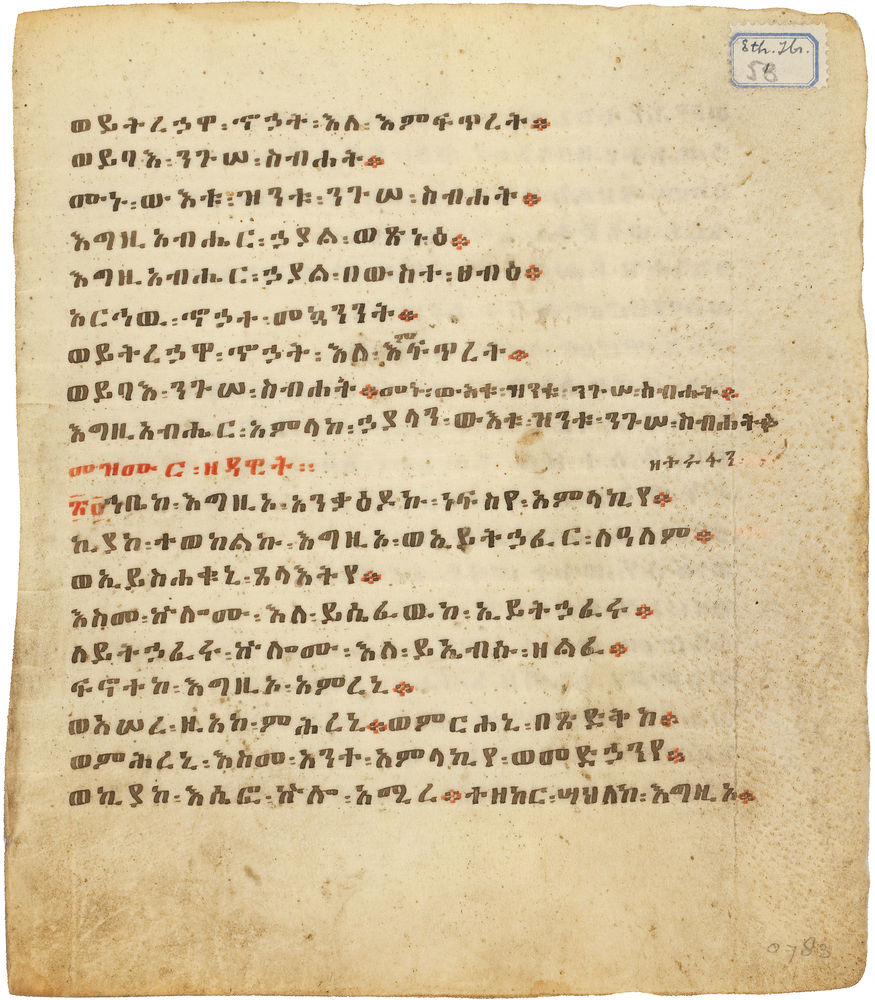 Eth. Ibr.
58
ወይትረኃዋ፡ኆኃት፡እለ፡እምፍጥረት።
ወይባእ፡ንጉሠ፡ስብሐት።
መኑ፡ውእቱ፡ዝንቱ፡ንጉሠ፡ስብሐት።
እግዚአብሔር፡ኃያል፡ወጽኑዕ።
እግዚአብሔር፡ኃያል፡በውስተ፡ፀብዕ።
አርኅዉ፡ኆኃተ፡መኳንንት።
ወይትረኃዋ፡ኆኃት፡እለ፡እምፍጥረት።
ወይባእ፡ንጉሠ፡ስብሐት።መኑ፡ውእቱ፡ዝንቱ፡ንጉሠ፡ስብሐት።
እግዚአብሔር፡አምላከ፡ኃያላን፡ውእቱ፡ዝንቱ፡ንጉሠ፡ስብሐት።
መዝሙር፡ዘዳዊት።
ዘተራፋን
፳፬ኀቤከ፡እግዚኦ፡አንቃዕዶኩ፡ነፍስየ፡አምላኪየ።
ኪያከ፡ተወከልኩ፡እግዚኦ፡ወኢይትኃፈር፡ለዓለም።
ወኢይስሐቁኒ፡ጸላእትየ።
እስመ፡ኵሎሙ፡እለ፡ይሴፈዉከ፡ኢይትኃፈሩ።
ለይትኃፈሩ፡ኵሎሙ፡እለ፡ይኤብሱ፡ዘልፈ።
ፍኖተከ፡እግዚኦ፡አምረኒ።
ወአሠረ፡ዚአከ፡ምሕረኒ።ወምርሐኒ፡በጽድቅከ።
ወምሕረኒ፡እስመ፡አንተ፡አምላኪየ፡ወመድኃንየ።
ወኪያከ፡እሴፎ፡ኵሎ፡አሚረ።ተዘከር፡ሣህለከ፡እግዚኦ።
0783